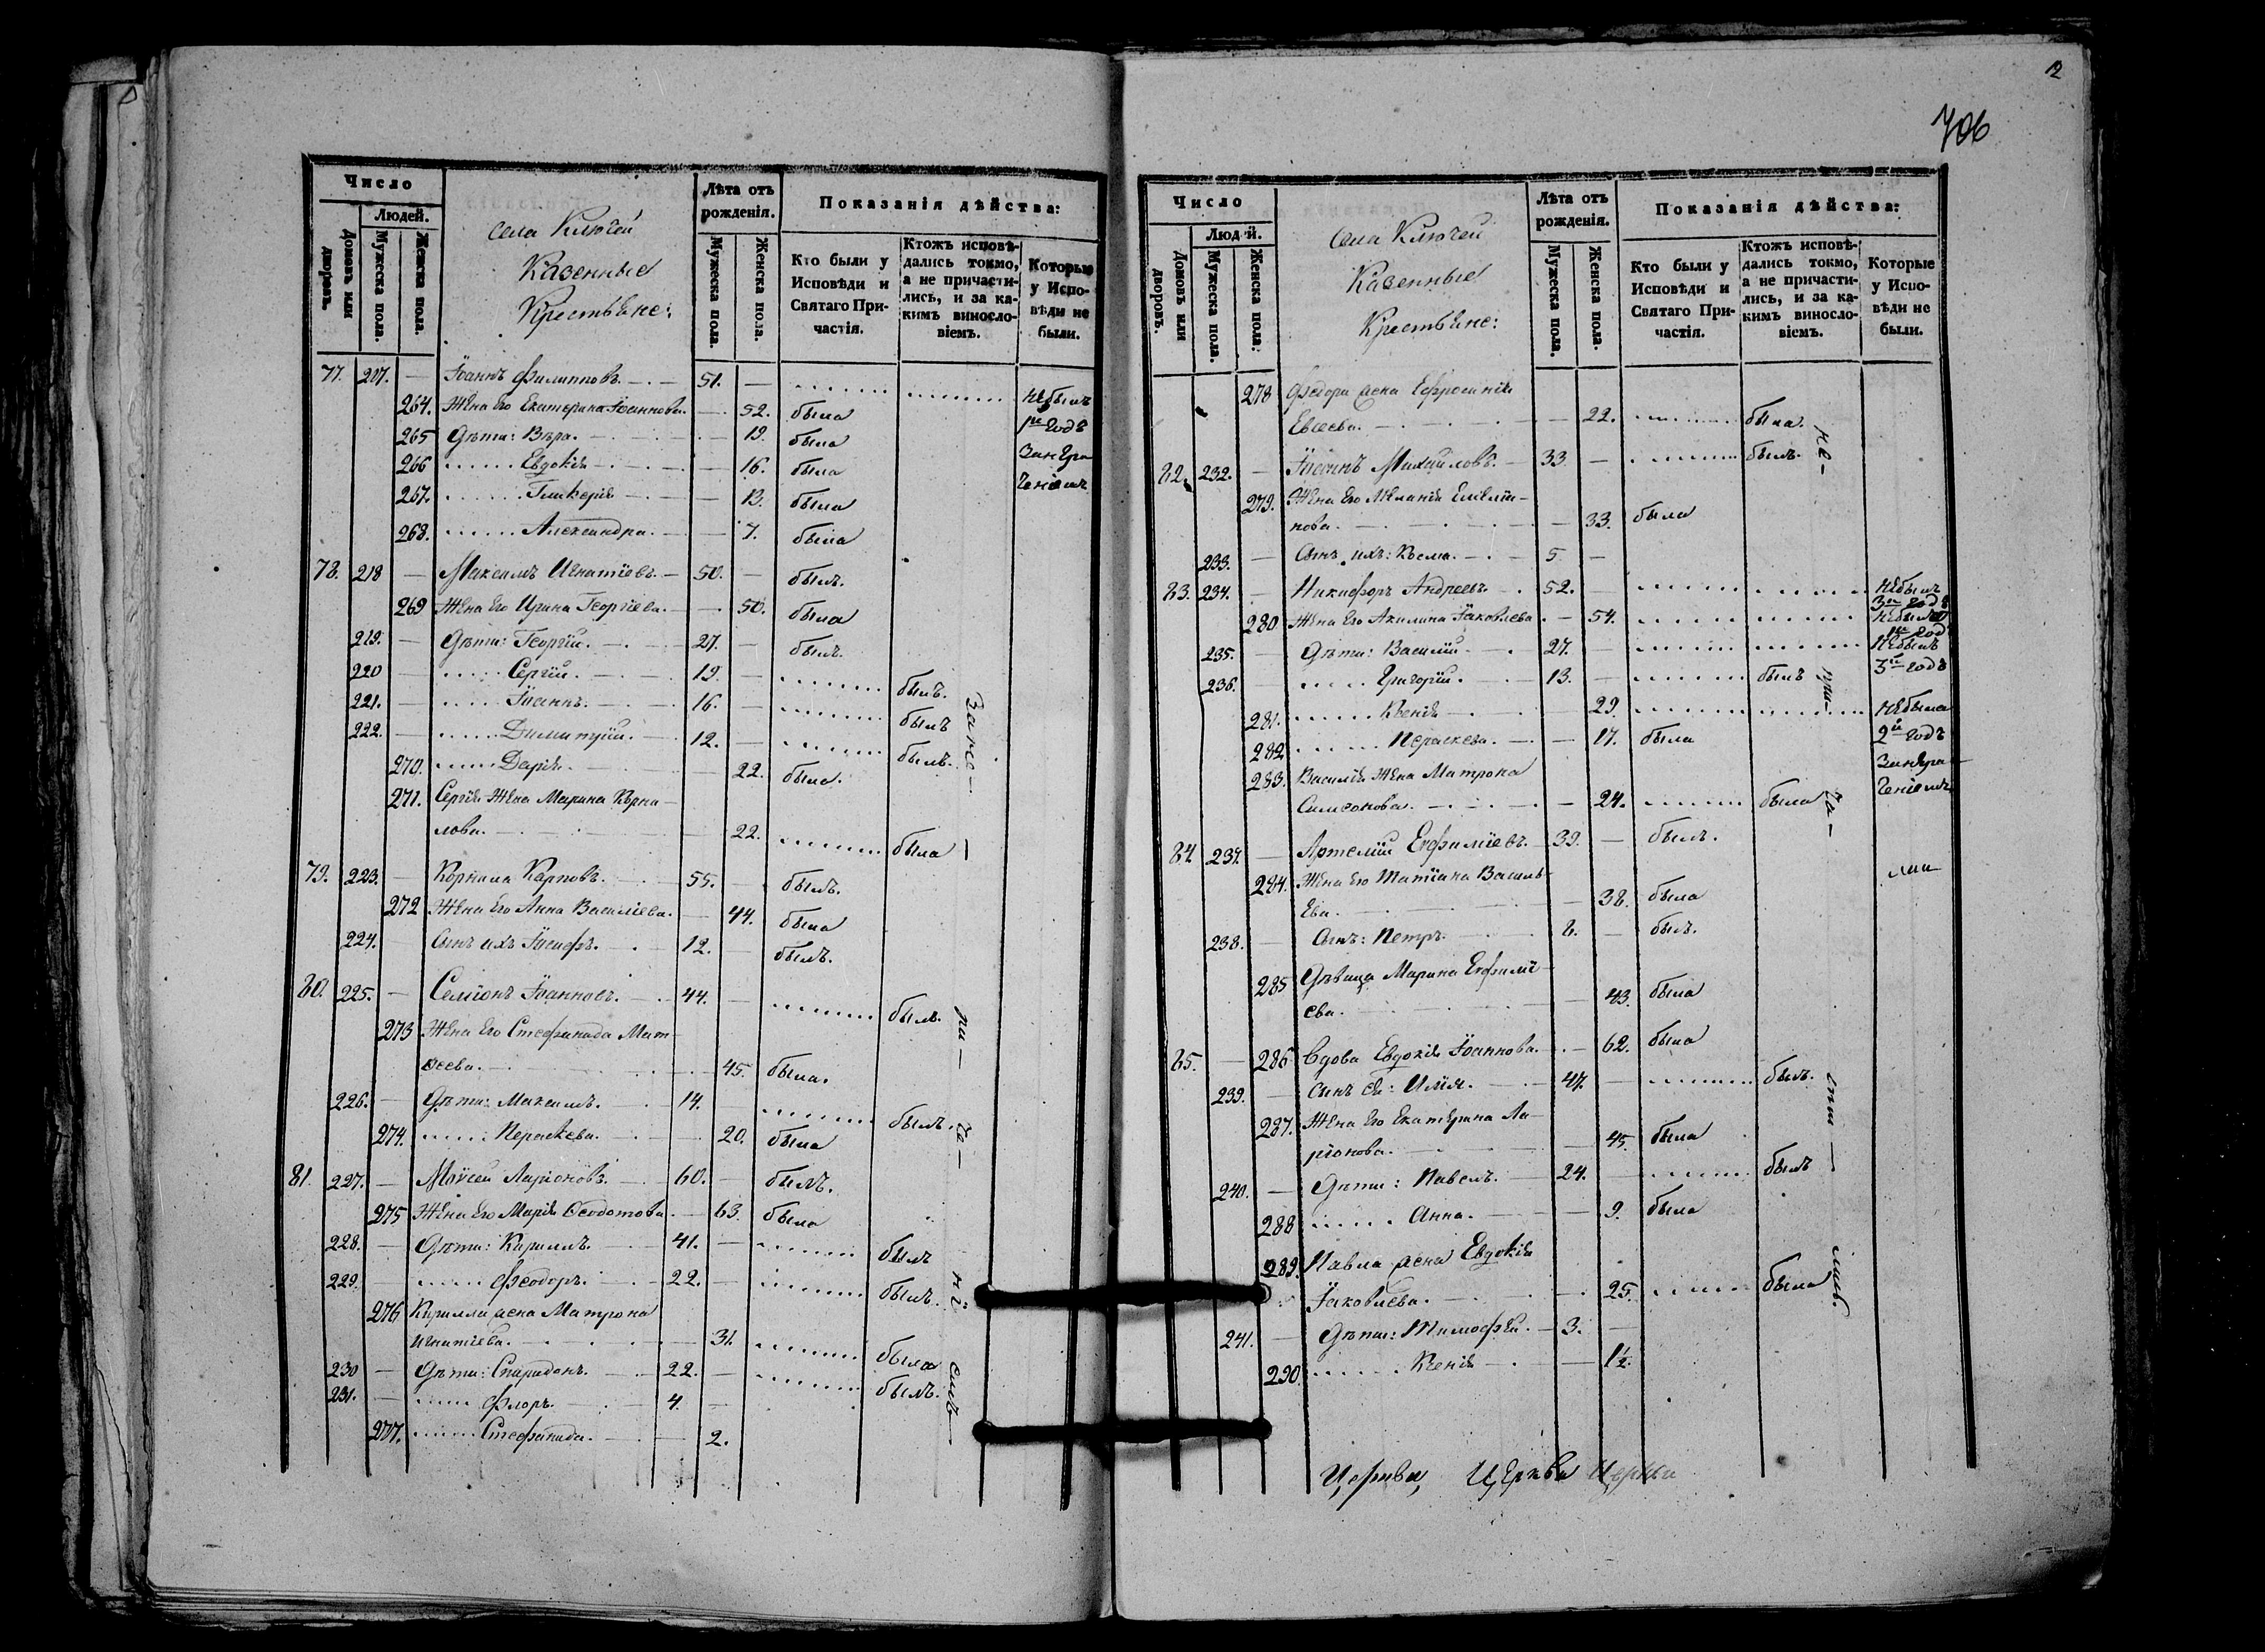 12
706
Число
Людей.
Домовъ или дворовъ.
Мужеска пола.
Женска пола.
села Ключей
Казенные
Крестьяне:
Лѣта отъ рожденія.
Мужеска пола.
Женска пола.
Показанія дѣйства:
Кто были у Исповѣди и Святаго Причастія.
Ктожъ исповѣдались токмо, а не причастились, и за какимъ винословіемъ.
Которые у Исповѣди не были.
77. 217. — Іоаннъ Филипповъ. — 51. — небылъ
264. Жена Его Екатерина Іоаннова. — 52. была 1й годъ
265 Дѣти: Вѣра. — 19. была занера
266 Евдокія — 16. была ченіемъ
267. Гликерія — 13. была
268. Александра. — 7. была
78. 218 — Максимъ Игнатіевъ. — 50. — былъ.
269 Жена Его Ирина Георгіева. — 50. была
219. — Дѣти: Георгій. — 27. — былъ.
220 — Сергій. — 19. — былъ.
221. — Іоаннъ. — 16. — былъ
222. — Димитрій. — 12. — былъ.
270. Дарія. — 22. была.
271. Сергія Жена Марина Корни-
лова. — 22. была
79. 223. — Корнила Карповъ. — 55. — былъ.
272 Жена Его Анна Василіева. — 44. была
224. — Сынъ ихъ Іосифъ. — 12. — былъ.
80. 225. — Симіонъ Іоанновъ. — 44. — былъ.
273 Жена Его Стефанида Мат-
ѳеева. — 45. была.
226. — Дѣти: Максимъ. — 14. — былъ.
274. Параскева. — 20. была
81. 227. — Моисей Ларіоновъ. — 60. — былъ.
275 Жена Его Марія Ѳеодотова — 63. была
228. — Дѣти: Кириллъ. — 41. — былъ
229. — Феодоръ. — 22. — былъ.
276 Кирилла жена Матрона
Игнатіева. — 31. была
230 — Дѣти: Спиридонъ. — 22. — былъ.
231. — Флоръ. — 4. —
277. Стефанида. — 2.
Зане-
ра-
че-
ні
емъ
Число
Людей.
Домовъ или дворовъ.
Мужеска пола.
Женска пола.
села Ключей
Казенные
Крестьяне:
Лѣта отъ рожденія.
Мужеска пола.
Женска пола.
Показанія дѣйства:
Кто были у Исповѣди и Святаго Причастія.
Ктожъ исповѣдались токмо, а не причастились, и за какимъ винословіемъ.
Которые у Исповѣди не были.
278 Феодора жена Ефросинія
Евсеева. — 22. была.
82. 232. — Іоаннъ Михайловъ. — 33. — былъ.
279. Жена Его Меланія Емеліа-
нова. — 33. была
233. — Сынъ ихъ: Козма. — 5. —
83. 234. — Никифоръ Андреевъ. — 52. — небылъ 3й годъ
280 Жена Его Акилина Іаковлева. — 54. небыла 1й годъ
235. — Дѣти: Василій. — 27. — небылъ 3й годъ
236. — Григорій. — 13. — былъ
281. Ксенія — 29. небыла
282 Параскева. — 17. была 2й годъ
283. Василія Жена Матрона занера
Симеонова. — 24. была ченіемъ
84. 237. — Артемій Евфиміевъ. — 39. — былъ.
284. Жена Его Татіана Василь-
Ева. — 38. была
238. — Сынъ: Петръ. — 8. — былъ.
285 Дѣвица Марина Евфимі-
ева. — 43. была
85. — 286 Вдова Евдокія Іоаннова. — 62. была
239. — Сынъ Ея: Илія. — 47. — былъ.
287. Жена Его Екатерина Ла-
ріонова. — 45. была
240. — Дѣти: Павелъ. — 24. — былъ
288 Анна. — 9. была
289. Павла жена Евдокія
Іаковлева. — 25. была
241. — Дѣти: Тимофей. — 3. —
290. Ксенія — 1½.
не-
при-
ча-
сти-
лись.
Церкви, Церкви Церкви